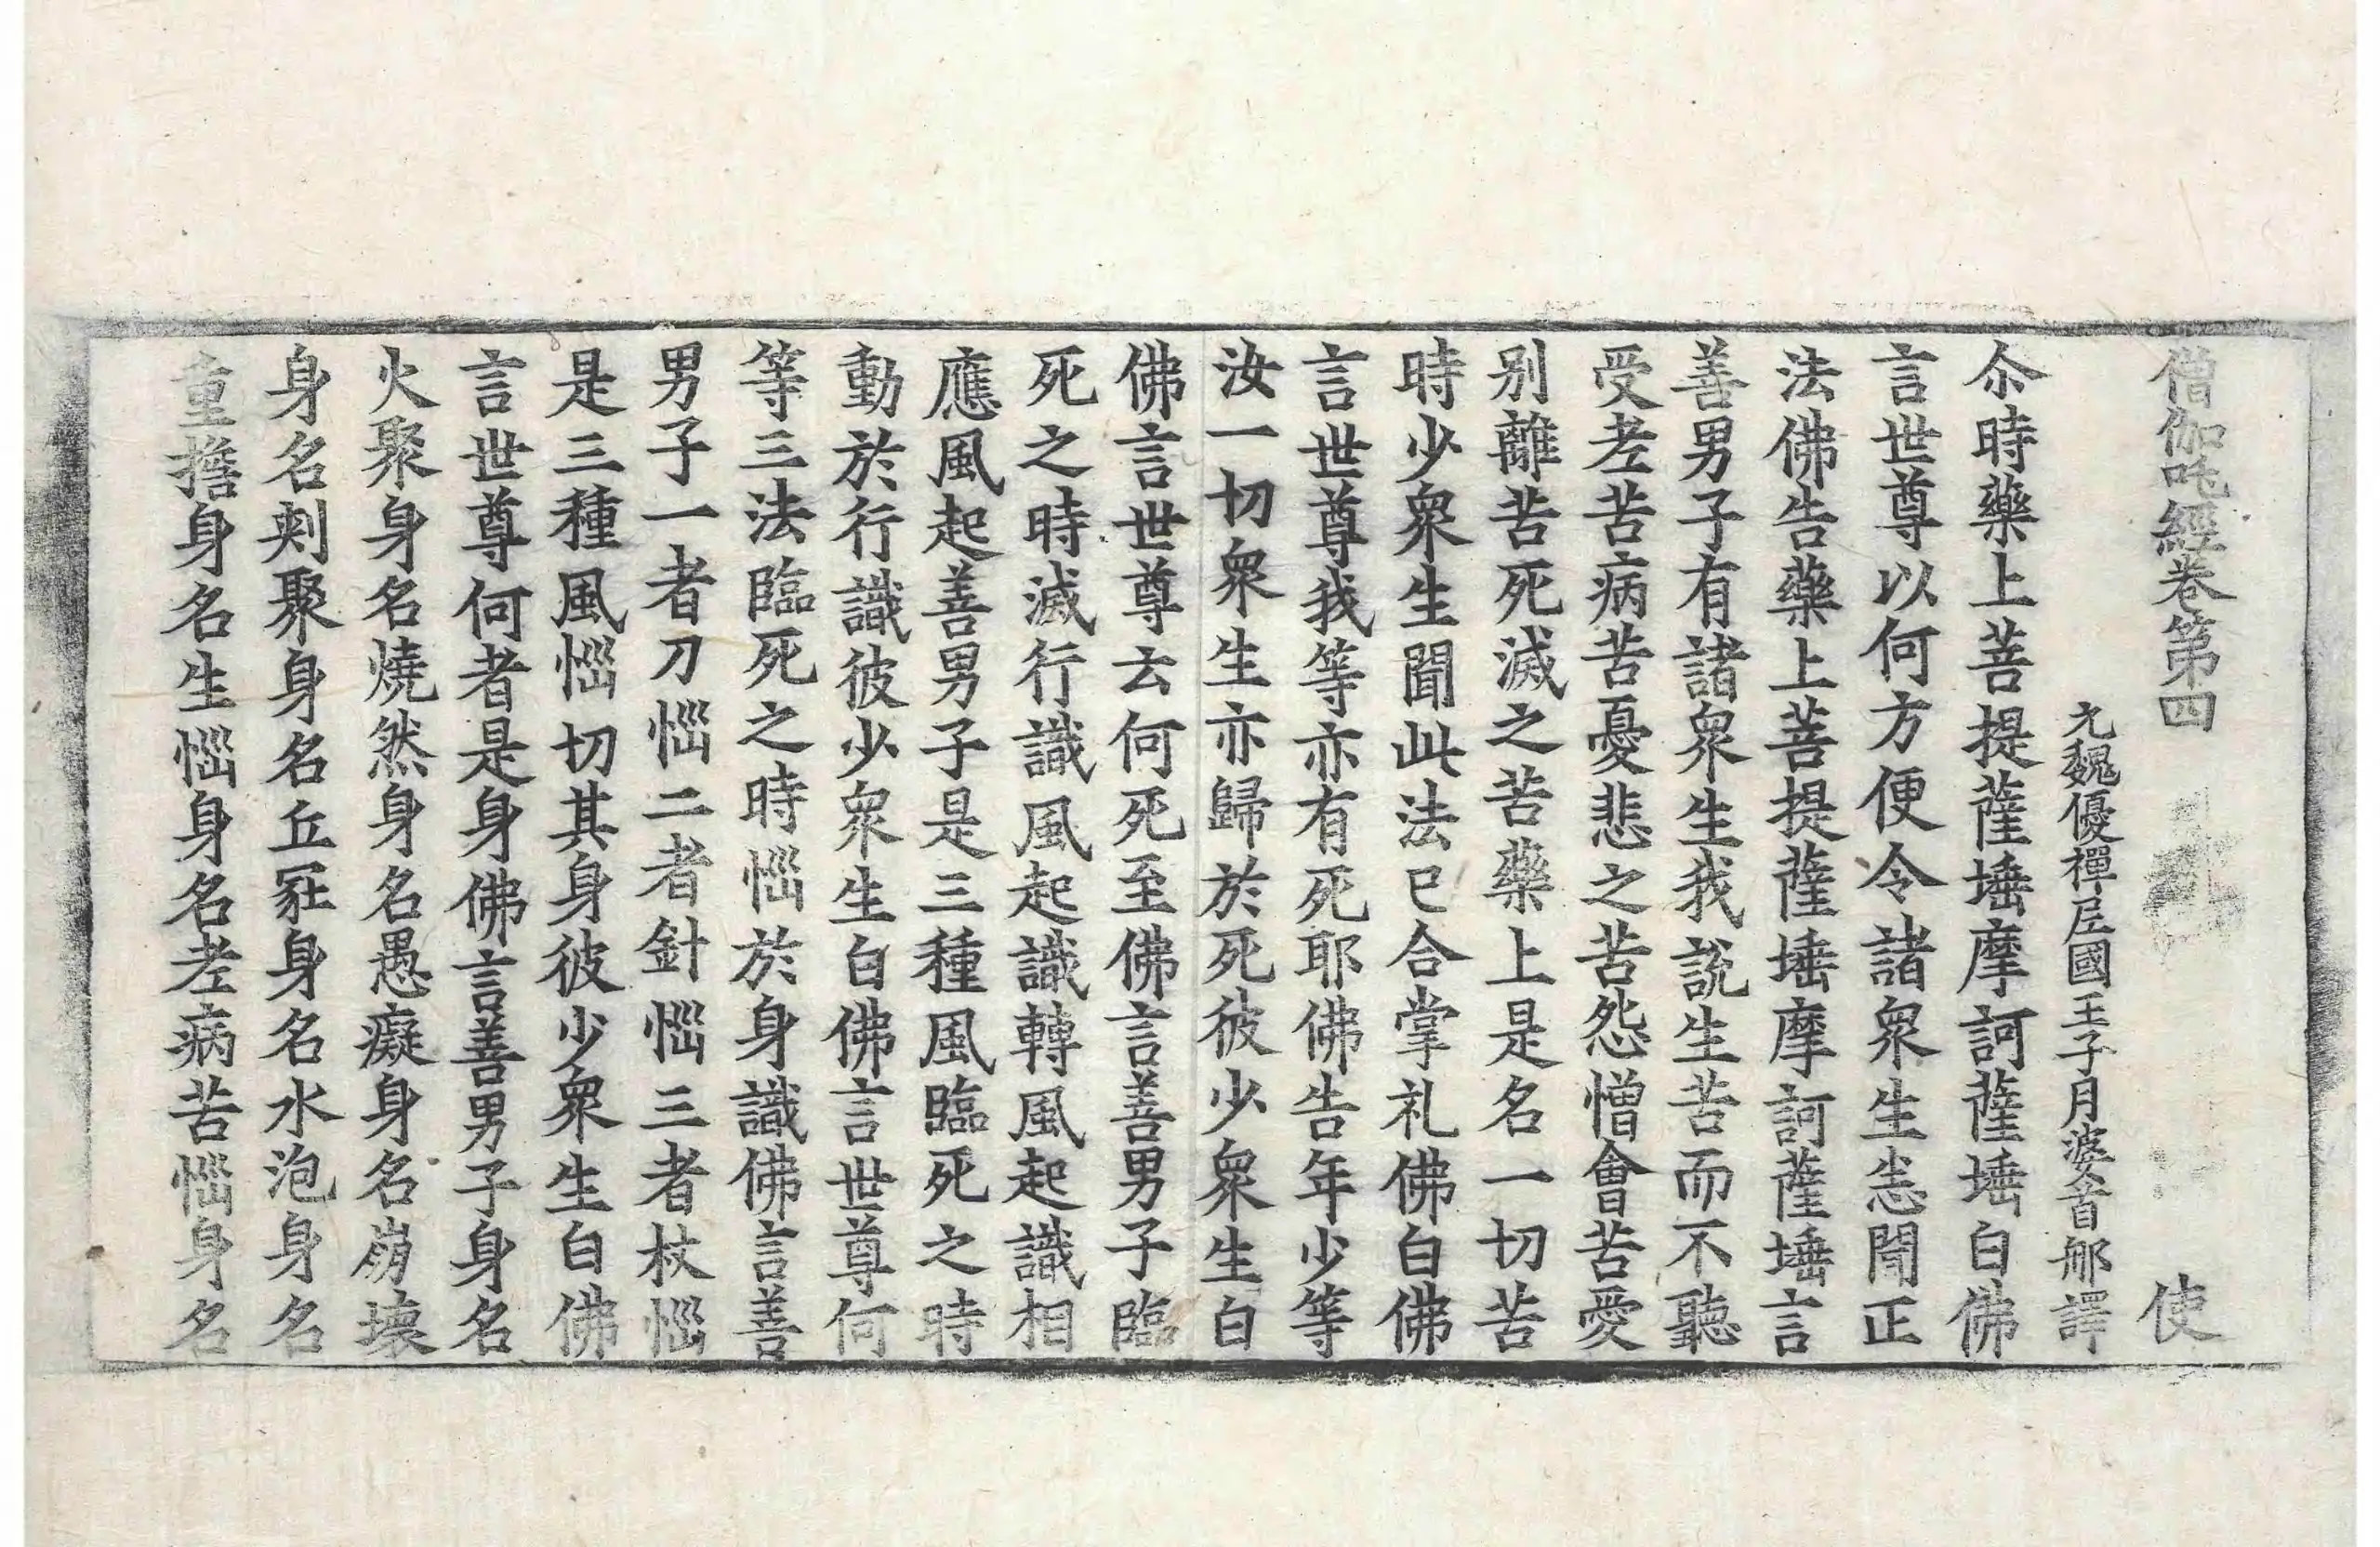 僧伽吒經卷第四 使
元魏優禪尼國王子月婆首那譯
尒時藥上菩提薩埵摩訶薩埵白佛
言世尊以何方便令諸衆生悉聞正
法佛告藥上菩提薩埵摩訶薩埵言
善男子有諸衆生我説生苦而不聽
受老苦病苦憂悲之苦怨憎會苦愛
别離苦死滅之苦藥上是名一切苦
時少衆生聞此法已合掌礼佛白佛
言世尊我等亦有死耶佛告年少等
汝一切衆生亦歸於死彼少衆生白
佛言世尊云何死至佛言善男子臨
死之時滅行識風起識轉風起識相
應風起善男子是三種風臨死之時
動於行識彼少衆生白佛言世尊何
等三法臨死之時惱於身識佛言善
男子一者刀惱二者針惱三者杖惱
是三種風惱切其身彼少衆生白佛
言世尊何者是身佛言善男子身名
火聚身名燒然身名愚癡身名崩壞
身名刺聚身名丘冢身名水泡身名
重擔身名生惱身名老病苦惱身名